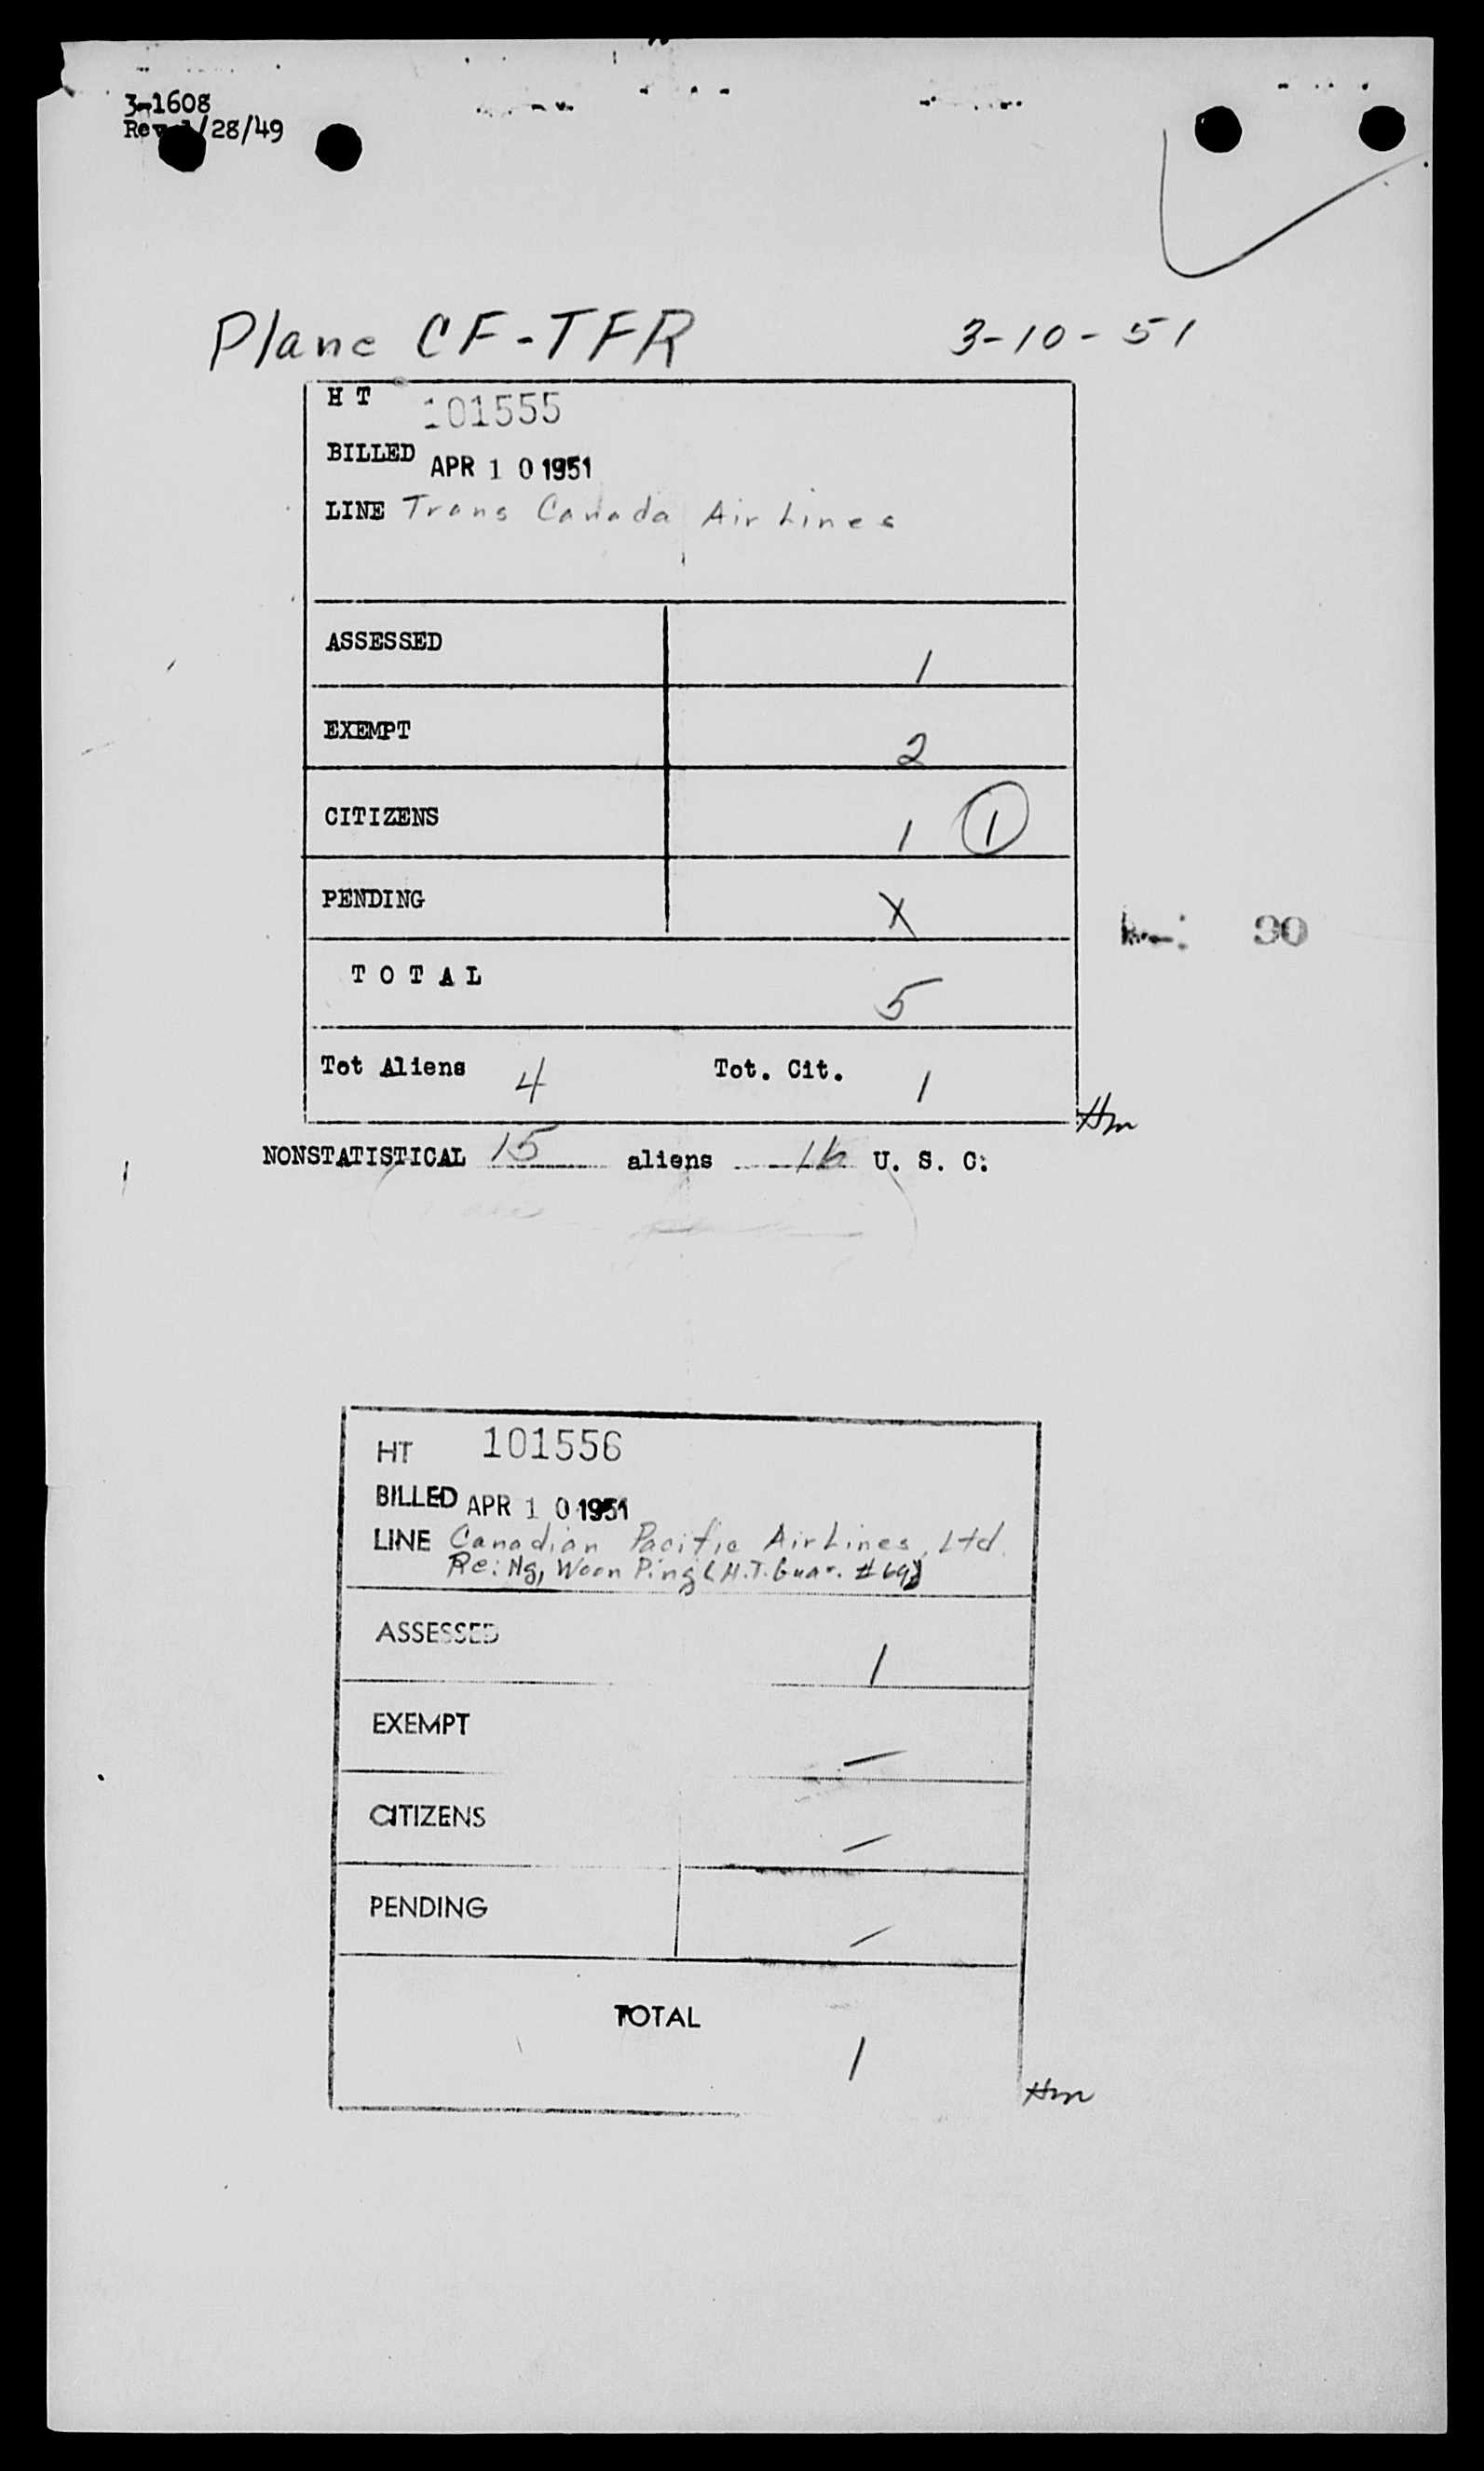 3-1608
Rev 1/28/49
Plane CF-TFR 3-10-51
H T 101555
BILLED APR 1 0 1951
LINE Trans Canada Air Lines
ASSESSED 1
EXEMPT 2
CITIZENS 1 1
PENDING X
T O T A L 5
Tot Aliens 4 Tot. Cit. 1
Hm
NONSTATISTICAL 15 aliens 16 U. S. C.
90
HT 101556
BILLED APR 1 0 1951
LINE Canadian Pacific Air Lines, Ltd.
Re: Ng, Woon Ping (H.T. Guar. #69)
ASSESSED 1
EXEMPT —
CITIZENS —
PENDING —
TOTAL 1
Hm